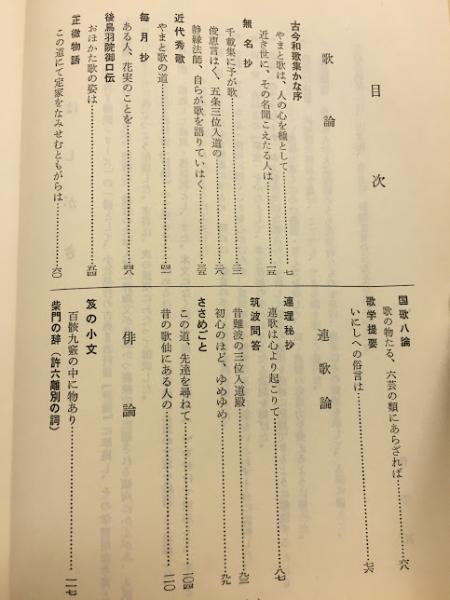 目次
歌論
古今和歌集かな序
やまと歌は、人の心を種として……七
近き世に、その名聞こえたる人は……一五
無名抄
千載集に予が歌……二二
俊恵言はく、五条三位入道の……二八
静縁法師、自らが歌を語りていはく……三五
近代秀歌
やまと歌の道……四一
毎月抄
ある人、花実のことを……四八
後鳥羽院御口伝
おほかた歌の姿は……五四
正徹物語
この道にて定家をなみせむともがらは……六〇
国歌八論
歌の物たる、六芸の類にあらざれば……六八
歌学提要
いにしへの俗言は……七六
連歌論
連理秘抄
連歌は心より起こりて……八七
筑波問答
昔難波の三位入道殿……九三
初心のほど、ゆめゆめ……九九
ささめごと
この道、先達を尋ねて……一〇四
昔の歌仙にある人の……一一〇
俳論
笈の小文
百骸九竅の中に物あり……一一七
柴門の辞（許六離別の詞）